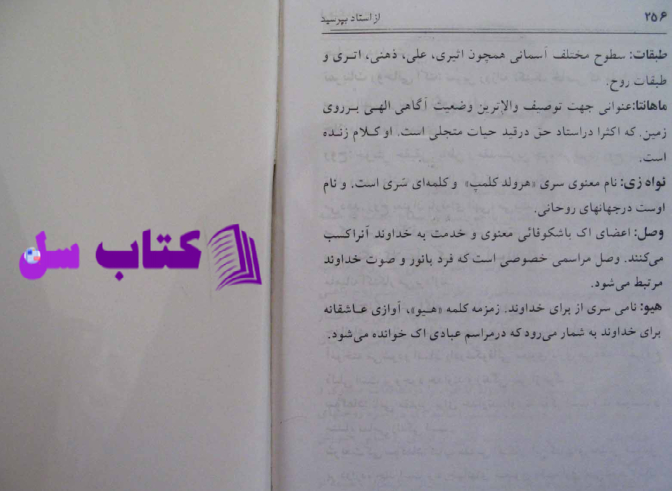 ۲۵۶
از استاد بپرسید
طبقات: سطوح مختلف آسمانی همچون اثیری، علی، ذهنی، اتری و
طبقات روح.
ماهانتا: عنوانی جهت توصیف والاترین وضعیت آگاهی الهی برروی
زمین. که اکثرا دراستاد حق درقید حیات متجلی است. او کلام زنده
است.
نواد زی: نام معنوی سری «هرولد کلمپ» و کلمه‌ای سری است. و نام
اوست درجهانهای روحانی.
وصل: اعضای اک باشکوفائی معنوی و خدمت به خداوند آنراکسب
می‌کنند. وصل مراسمی خصوصی است که فرد بانور و صوت خداوند
مرتبط می‌شود.
هیو: نامی سری از برای خداوند. زمزمه کلمه «هیو»، آوازی عاشقانه
برای خداوند به شمار می‌رود که درمراسم عبادی اک خوانده می‌شود.
کتاب سل